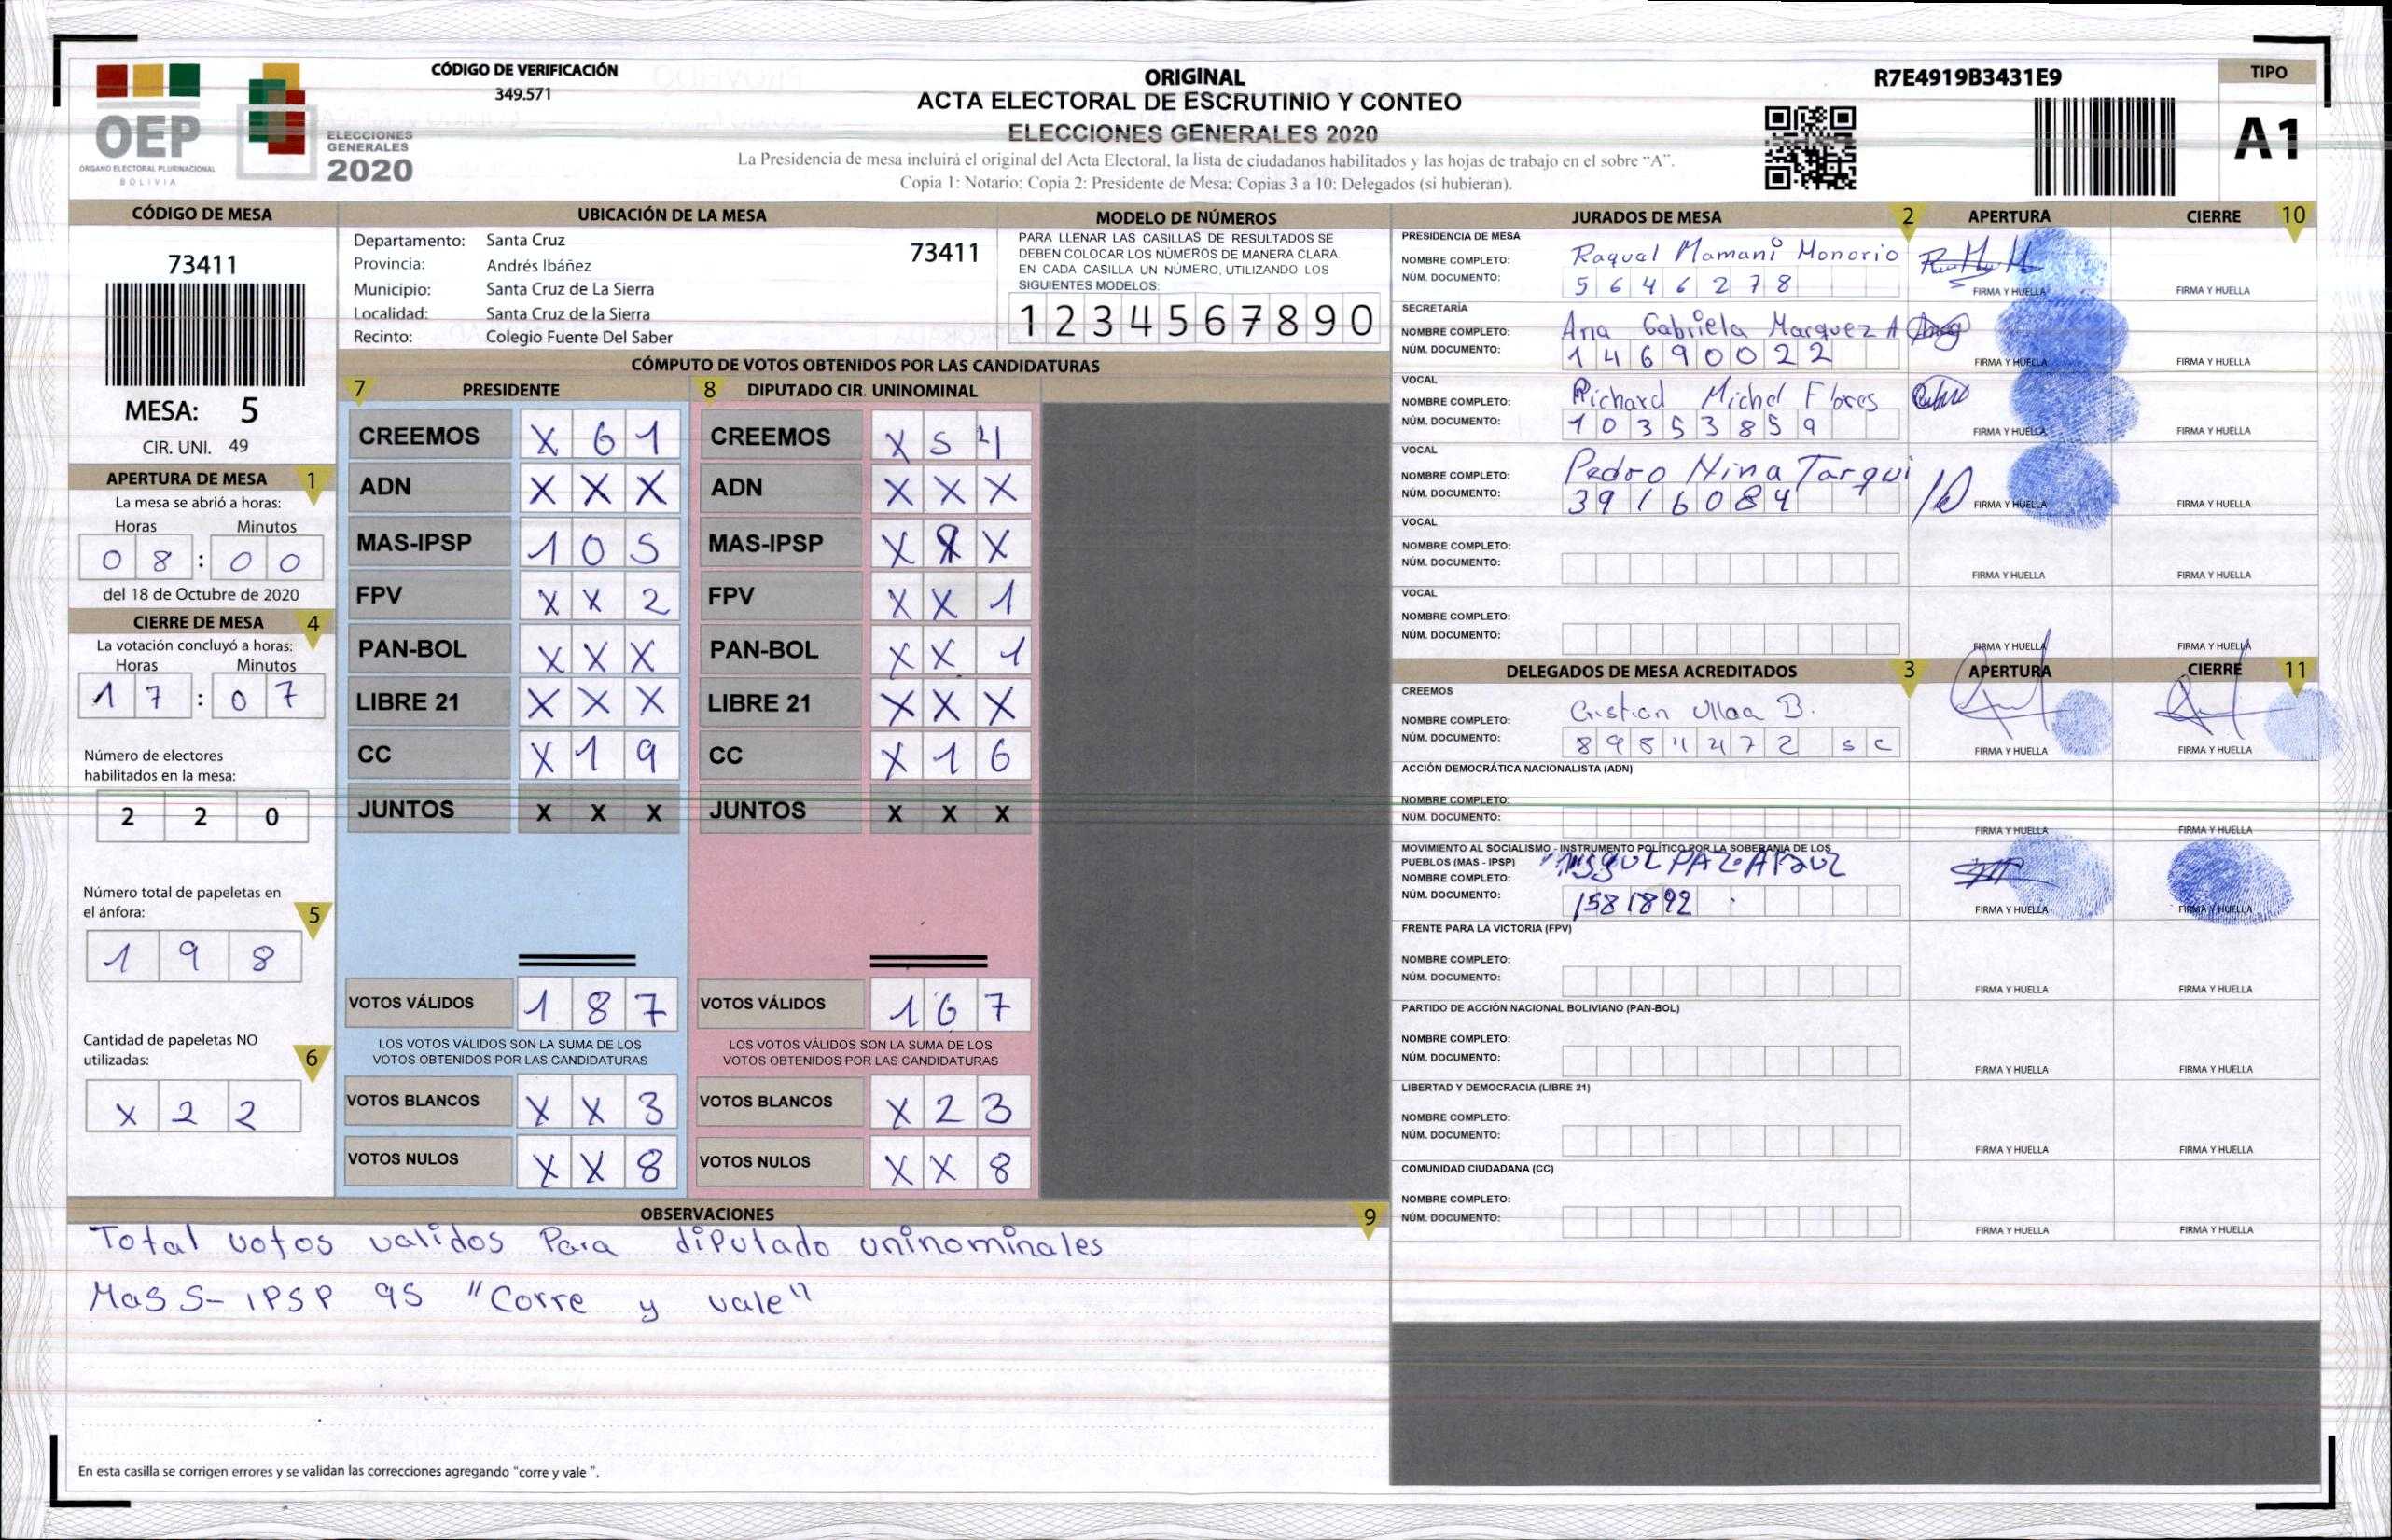 OEP
ÓRGANO ELECTORAL PLURINACIONAL
BOLIVIA
ELECCIONES
GENERALES
2020
CÓDIGO DE VERIFICACIÓN
349.571
ORIGINAL
ACTA ELECTORAL DE ESCRUTINIO Y CONTEO
ELECCIONES GENERALES 2020
La Presidencia de mesa incluirá el original del Acta Electoral, la lista de ciudadanos habilitados y las hojas de trabajo en el sobre “A”.
Copia 1: Notario; Copia 2: Presidente de Mesa; Copias 3 a 10: Delegados (si hubieran).
R7E4919B3431E9
TIPO
A1
CÓDIGO DE MESA
73411
MESA: 5
CIR. UNI. 49
APERTURA DE MESA 1
La mesa se abrió a horas:
Horas Minutos
0 8 : 0 0
del 18 de Octubre de 2020
CIERRE DE MESA 4
La votación concluyó a horas:
Horas Minutos
1 7 : 0 7
Número de electores
habilitados en la mesa:
2 2 0
Número total de papeletas en
el ánfora: 5
1 9 8
Cantidad de papeletas NO
utilizadas: 6
X 2 2
UBICACIÓN DE LA MESA
Departamento: Santa Cruz 73411
Provincia: Andrés Ibáñez
Municipio: Santa Cruz de La Sierra
Localidad: Santa Cruz de la Sierra
Recinto: Colegio Fuente Del Saber
MODELO DE NÚMEROS
PARA LLENAR LAS CASILLAS DE RESULTADOS SE
DEBEN COLOCAR LOS NÚMEROS DE MANERA CLARA.
EN CADA CASILLA UN NÚMERO, UTILIZANDO LOS
SIGUIENTES MODELOS:
1 2 3 4 5 6 7 8 9 0
CÓMPUTO DE VOTOS OBTENIDOS POR LAS CANDIDATURAS
7 PRESIDENTE 8 DIPUTADO CIR. UNINOMINAL
CREEMOS X 6 1 CREEMOS X 5 4
ADN X X X ADN X X X
MAS-IPSP 1 0 5 MAS-IPSP X X
FPV X X 2 FPV X X 1
PAN-BOL X X X PAN-BOL X X 1
LIBRE 21 X X X LIBRE 21 X X X
CC X 1 9 CC X 1 6
JUNTOS X X X JUNTOS X X X
VOTOS VÁLIDOS 1 8 7 VOTOS VÁLIDOS 1 6 7
LOS VOTOS VÁLIDOS SON LA SUMA DE LOS LOS VOTOS VÁLIDOS SON LA SUMA DE LOS
VOTOS OBTENIDOS POR LAS CANDIDATURAS VOTOS OBTENIDOS POR LAS CANDIDATURAS
VOTOS BLANCOS X X 3 VOTOS BLANCOS X 2 3
VOTOS NULOS X X 8 VOTOS NULOS X X 8
OBSERVACIONES 9
Total votos validos Para diputado uninominales
Mas S- IPSP 95 "Corre y vale"
En esta casilla se corrigen errores y se validan las correcciones agregando “corre y vale ”.
JURADOS DE MESA 2 APERTURA CIERRE 10
PRESIDENCIA DE MESA
NOMBRE COMPLETO: Raquel Mamani Monorio
NÚM. DOCUMENTO: 5 6 4 6 2 7 8 FIRMA Y HUELLA FIRMA Y HUELLA
SECRETARÍA
NOMBRE COMPLETO: Ana Gabriela Marquez A
NÚM. DOCUMENTO: 1 4 6 9 0 0 2 2 FIRMA Y HUELLA FIRMA Y HUELLA
VOCAL
NOMBRE COMPLETO: Richard Michel Flores
NÚM. DOCUMENTO: 1 0 3 5 3 8 5 9 FIRMA Y HUELLA FIRMA Y HUELLA
VOCAL
NOMBRE COMPLETO: Pedro Nina Tarqui
NÚM. DOCUMENTO: 3 9 1 6 0 8 4 FIRMA Y HUELLA FIRMA Y HUELLA
VOCAL
NOMBRE COMPLETO:
NÚM. DOCUMENTO: FIRMA Y HUELLA FIRMA Y HUELLA
VOCAL
NOMBRE COMPLETO:
NÚM. DOCUMENTO: FIRMA Y HUELLA FIRMA Y HUELLA
DELEGADOS DE MESA ACREDITADOS 3 APERTURA CIERRE 11
CREEMOS
NOMBRE COMPLETO: Cristian B.
NÚM. DOCUMENTO: s c FIRMA Y HUELLA FIRMA Y HUELLA
ACCIÓN DEMOCRÁTICA NACIONALISTA (ADN)
NOMBRE COMPLETO:
NÚM. DOCUMENTO: FIRMA Y HUELLA FIRMA Y HUELLA
MOVIMIENTO AL SOCIALISMO - INSTRUMENTO POLÍTICO POR LA SOBERANIA DE LOS
PUEBLOS (MAS - IPSP)
NOMBRE COMPLETO:
NÚM. DOCUMENTO: 1581892 FIRMA Y HUELLA FIRMA Y HUELLA
FRENTE PARA LA VICTORIA (FPV)
NOMBRE COMPLETO:
NÚM. DOCUMENTO: FIRMA Y HUELLA FIRMA Y HUELLA
PARTIDO DE ACCIÓN NACIONAL BOLIVIANO (PAN-BOL)
NOMBRE COMPLETO:
NÚM. DOCUMENTO: FIRMA Y HUELLA FIRMA Y HUELLA
LIBERTAD Y DEMOCRACIA (LIBRE 21)
NOMBRE COMPLETO:
NÚM. DOCUMENTO: FIRMA Y HUELLA FIRMA Y HUELLA
COMUNIDAD CIUDADANA (CC)
NOMBRE COMPLETO:
NÚM. DOCUMENTO: FIRMA Y HUELLA FIRMA Y HUELLA